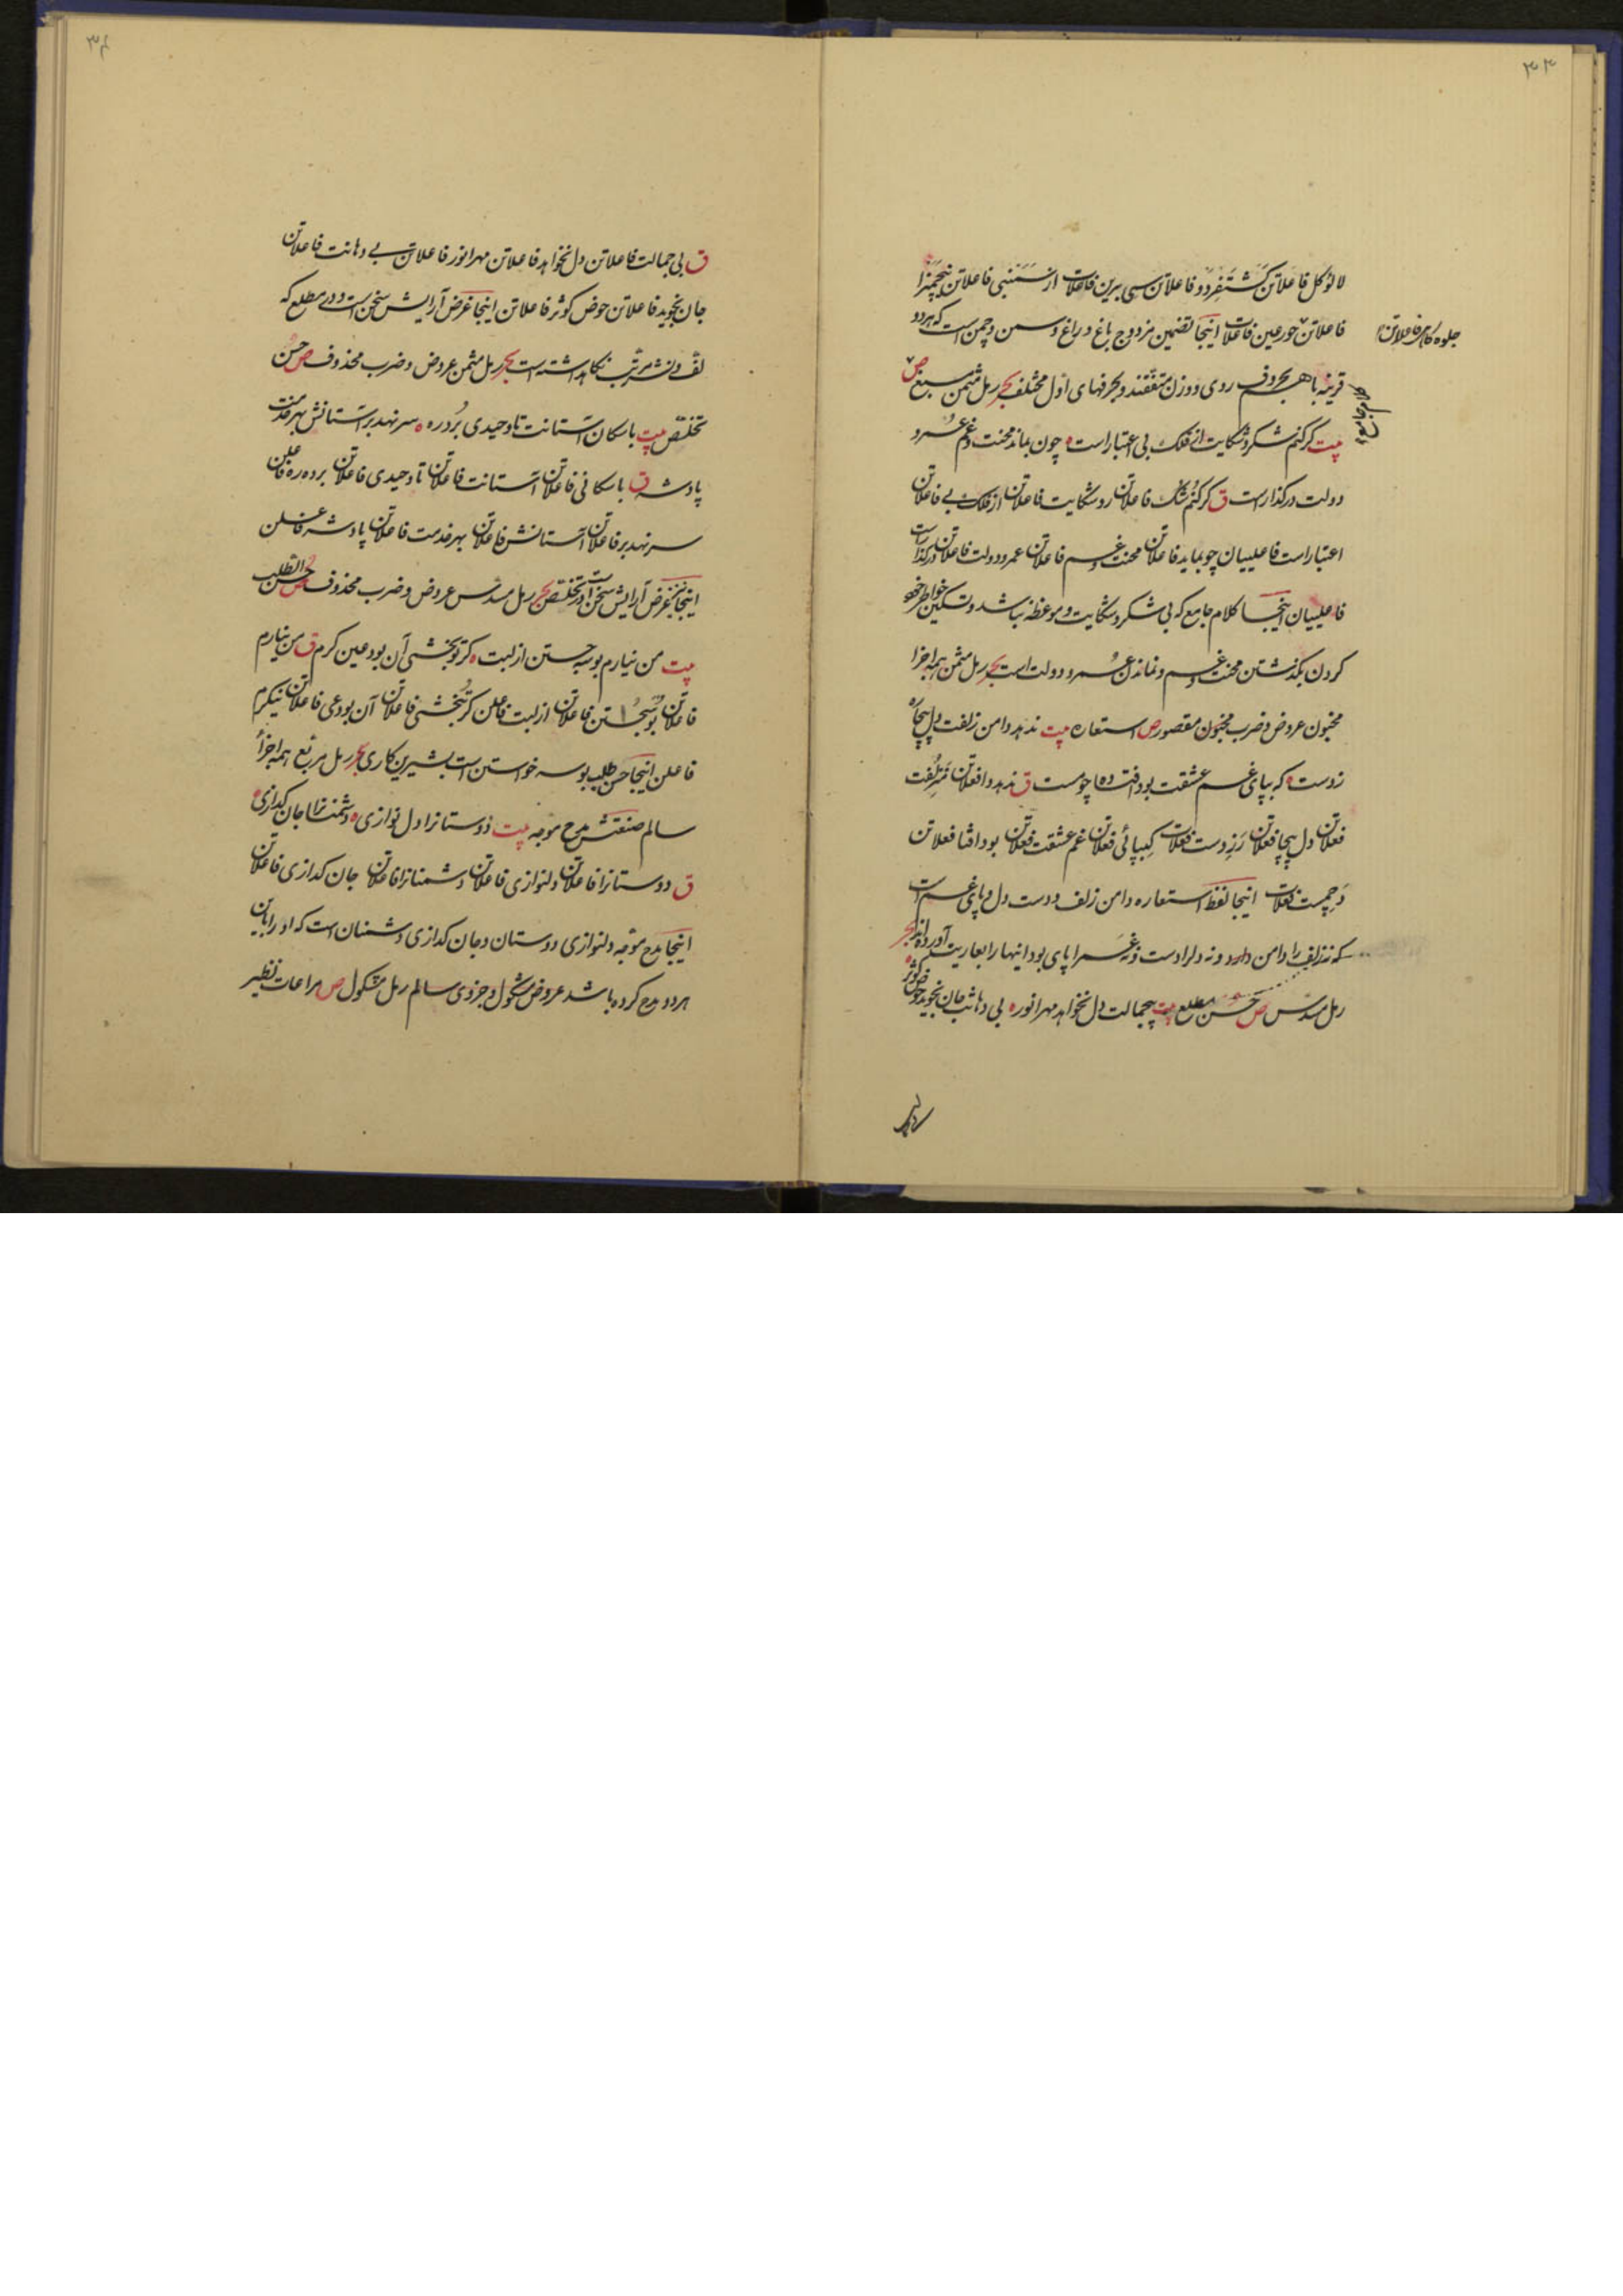 ۳۳
لالؤ کل فاعلاتن کشتفردو فاعلاتن سی برین فاعلات از سمنبی فاعلاتن
فاعلاتن حور عین فاعلات اینجا تضمین مزدوج باغ و راغ و سمن و چمن است که هر دو
جلوه کاهر فاعلاتن
قرینه باهم بحروف روی و وزن متفقند و بحرفهای اول مختلف بحر رمل مثمن مسبغ ص
کلام جامع
بیت کر کنم شکر و شکایت از فلک بی اعتبار است ه چون بماند محنت و غم عمر و
دولت در کذار است ق کر کنم شک فاعلاتن رو شکایت فاعلاتن از فلک بی فاعلاتن
اعتبار است فاعلییان چو بماید فاعلاتن محنت و غم فاعلاتن عمر و دولت فاعلاتن در کذار است
فاعلییان اینجا کلام جامع که بی شکر و شکایت و موعظه نباشد و تسکین خواطر خود
کردن بکذشتن محنت و غم و نماندن عمر و دولت است بحر رمل مثمن همه اجزا
مخبون عروض و ضرب مخبون مقصور ص استعاره بیت ندهد دامن زلفت دل بیچاره
ز دست ه که بپای غم عشقت بود افتاده چو مست ق ندهد دا فعلاتن من زلفت
فعلاتن دل بیچا فعلاتن رز دست فعلات کبپائی فعلاتن غم عشقت فعلاتن بود افتا فعلاتن
دچمست فعلات اینجا لفظ استعاره دامن زلف و دست دل و پای غم است
که نه زلف را دامن دارد و نه دل را دست و نه غم را پای بود اینها را بعاریت آورده اند بحر
رمل مسدس ص حسن مطلع بیت بیجمالت دل نخواهد مهر انور ه بی دهانت جان نجوید حوض کوثر
۳۴
ق بی جمالت فاعلاتن دل نخواهد فاعلاتن مهر انور فاعلاتن بی دهانت فاعلاتن
جان نجوید فاعلاتن حوض کوثر فاعلاتن اینجا غرض آرایش سخن است در مطلع که
لف و نشر مرتب نکاهداشته است بحر رمل مثمن عروض و ضرب محذوف ص حسن
تخلص بیت با سکان آستانت تا وحیدی برد ره ه سر نهد بر آستانش بهر خدمت
پادشه ق با سکانی فاعلاتن آستانت فاعلاتن تا وحیدی فاعلاتن برده ره فاعلن
سر نهد بر فاعلاتن آستانش فاعلاتن بهر خدمت فاعلاتن پادشه فاعلن
اینجا نیز غرض آرایش سخن است در تخلص بحر رمل مسدس عروض و ضرب محذوف ص حسن الطلب
بیت من نیارم بوسه جستن از لبت ه کر تو بخشی آن بود عین کرم ق من نیارم
فاعلاتن بوسجستن فاعلاتن از لبت فاعلن کر تبخشی فاعلاتن آن بود عی فاعلاتن نیکرم
فاعلن اینجا حسن طلب بوسه خواستن است بشیرین کاری بحر رمل مربع همه اجزأ
سالم صنعتش مدح موجه بیت دوستانرا دل نوازی ه دشمنانرا جان کدازی ه
ق دوستانرا فاعلاتن دلنوازی فاعلاتن دشمنانرا فاعلاتن جان کدازی فاعلاتن
اینجا مدح موجه دلنوازی دوستان و جان کدازی دشمنان است که او را باین
هر دو مدح کرده باشد عروض مشکول و جزوی سالم رمل مشکول ص مراعات نظیر